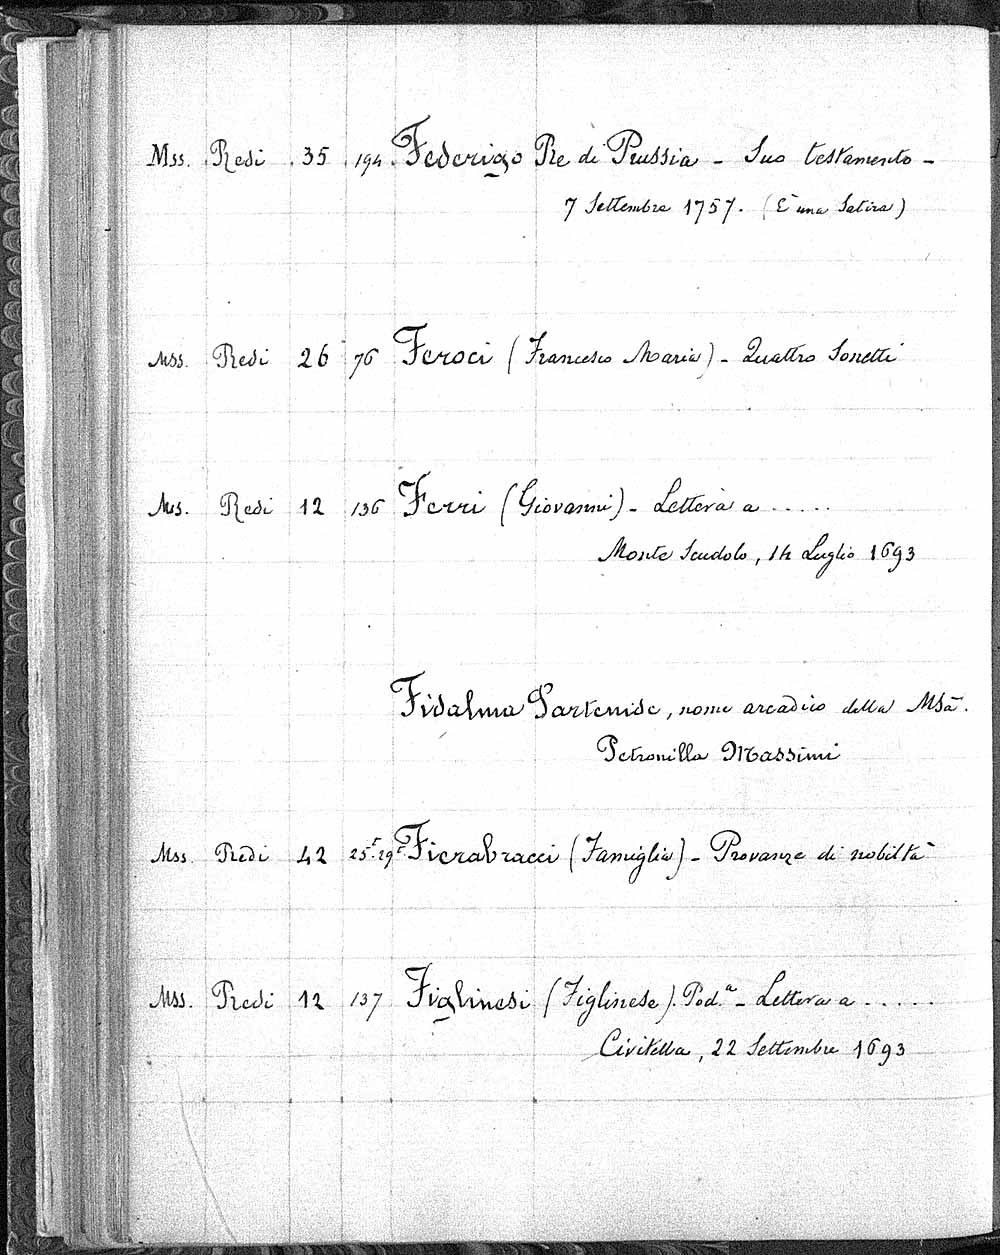 Mss. Redi 35 194. Federigo Re di Prussia - Suo testamento -
7 Settembre 1757. (È una Satira)
Mss. Redi 26 76 Feroci (Francesco Maria) - Quattro Sonetti
Ms. Redi 12 136 Ferri (Giovanni) - Lettera a .....
Monte Scudolo, 14 Luglio 1693
Fidalma Partenide, nome arcadico della Msa.
Petronilla Massimi
Mss Redi 42 25r-29r Fierabracci (Famiglia) - Provanze di nobiltà
Mss. Redi 12 137 Figlinesi (Figlinese) Pod.a - Lettera a .....
Civitella, 22 Settembre 1693